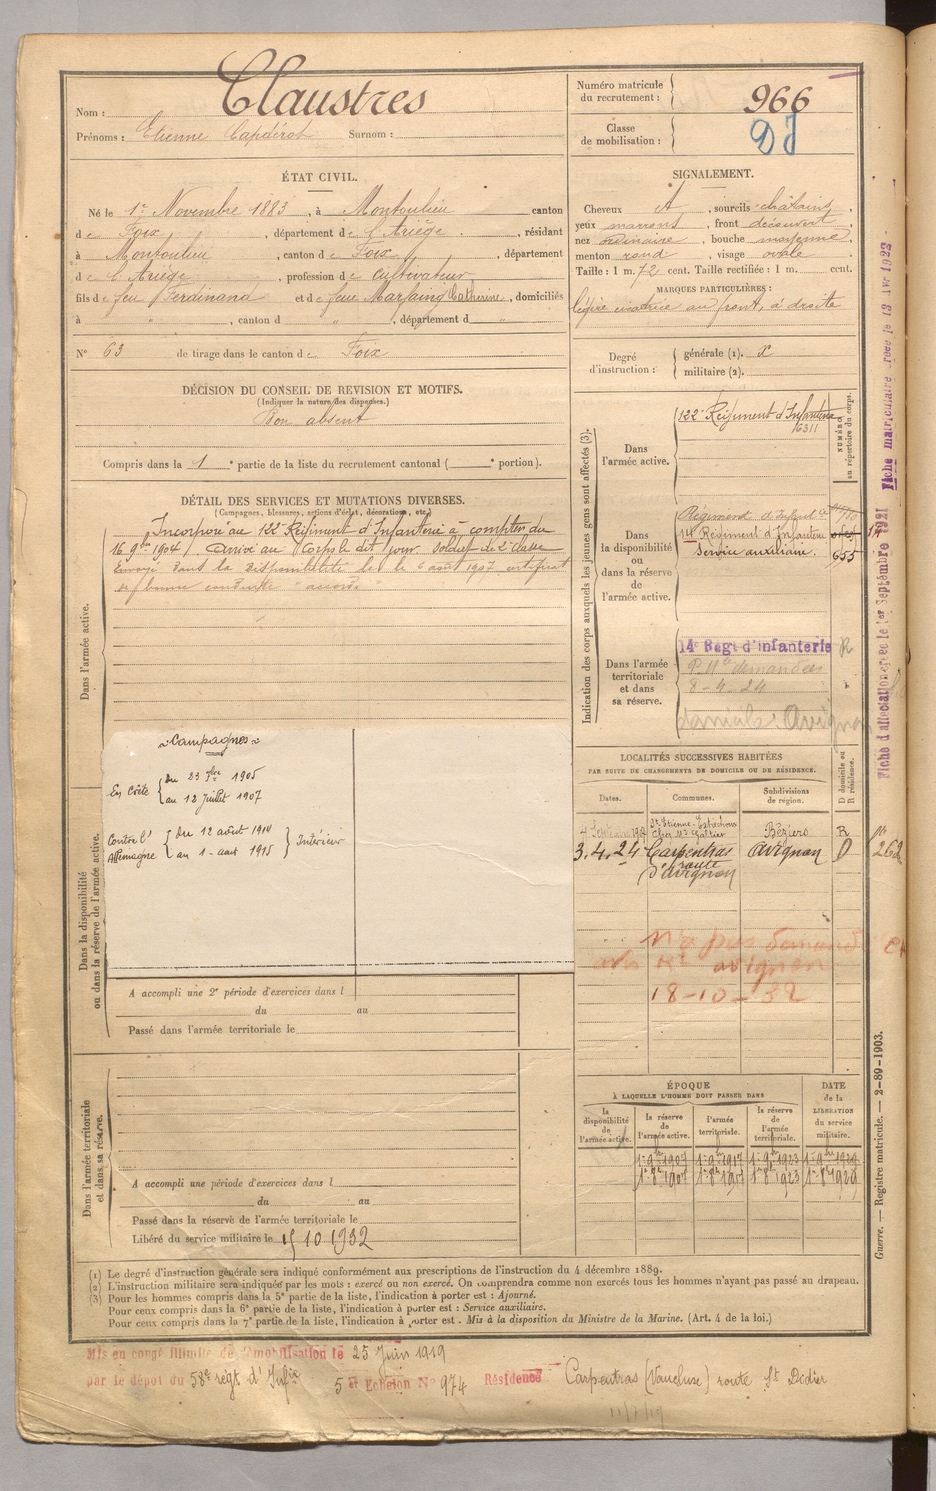 Nom : Claustres
Prénoms : Etienne Capdérot Surnom :
Numéro matricule
du recrutement : 966
Classe
de mobilisation :
ÉTAT CIVIL.
Né le 1er Novembre 1883, à Montoulieu canton
de Foix, département de l'Ariège, résidant
à Montoulieu, canton de Foix, département
de l'Ariège, profession de cultivateur
fils de feu Ferdinand et de feue Marfaing Catherine, domiciliés
à " , canton d " , département d "
N° 63 de tirage dans le canton de Foix
SIGNALEMENT.
Cheveux et , sourcils châtains,
yeux marrons, front découvert,
nez ordinaire, bouche moyenne,
menton rond, visage ovale.
Taille : 1 m. 72 cent. Taille rectifiée : 1 m. cent.
MARQUES PARTICULIÈRES :
légère cicatrice au front, à droite
Degré
d'instruction :
générale (1). x
militaire (2).
DÉCISION DU CONSEIL DE REVISION ET MOTIFS.
(Indiquer la nature des dispenses.)
Bon absent
Compris dans la 1e partie de la liste du recrutement cantonal ( e portion).
DÉTAIL DES SERVICES ET MUTATIONS DIVERSES.
(Campagnes, blessures, actions d'éclat, décorations, etc.)
Dans l'armée active.
Incorporé au 122e Régiment d'Infanterie à compter du
16 9bre 1904. Arrivé au Corps le dit jour. Soldat de 2e classe
Envoyé dans la disponibilité le 6 août 1907 certificat
de bonne conduite accordé
Indication des corps auxquels les jeunes gens sont affectés (3).
NUMÉRO
au répertoire du corps.
Dans
l'armée active.
122e Régiment d'Infanterie
6311
Dans
la disponibilité
ou
dans la réserve
de
l'armée active.
Régiment d'Infanterie
14 Régiment d'Infanterie 14
Service auxiliaire. 655
Dans l'armée
territoriale
et dans
sa réserve.
14e Régt d'infanterie R
demandées
8-4-24
Avignon
Fiche d'affectation créée le 1er Septembre 1921
Fiche matriculaire créée le 13 Avr 1922
Dans la disponibilité
ou dans la réserve de l'armée active.
Campagnes
En Corse du 23 7bre 1905
au 12 Juillet 1907
Contre l'Allemagne du 12 août 1914
au 1 août 1915 Intérieur
A accompli une 2e période d'exercices dans l
du au
Passé dans l'armée territoriale le
LOCALITÉS SUCCESSIVES HABITÉES
PAR SUITE DE CHANGEMENTS DE DOMICILE OU DE RÉSIDENCE.
Dates. Communes. Subdivisions de région. D domicile ou R résidence.
4 Septembre St Etienne Béziers R
3.4.24 Carpentras Avignon D 262
route
d'Avignon
n'a pas demandé
Avignon
18-10-32
Dans l'armée territoriale
et dans sa réserve.
A accompli une période d'exercices dans l
du au
Passé dans la réserve de l'armée territoriale le
Libéré du service militaire le 15 10 1932
ÉPOQUE
À LAQUELLE L'HOMME DOIT PASSER DANS
la disponibilité de l'armée active.
la réserve de l'armée active.
l'armée territoriale.
la réserve de l'armée territoriale.
DATE de la LIBÉRATION du service militaire.
1er 9bre 1907 1er 9bre 1917 1er 9bre 1923 1er 9bre 1929
1er 8bre 1907 1er 8bre 1917 1er 8bre 1923 1er 8bre 1929
Guerre. — Registre matricule. — 2-89-1903.
(1) Le degré d'instruction générale sera indiqué conformément aux prescriptions de l'instruction du 4 décembre 1889.
(2) L'instruction militaire sera indiquée par les mots : exercé ou non exercé. On comprendra comme non exercés tous les hommes n'ayant pas passé au drapeau.
(3) Pour les hommes compris dans la 5e partie de la liste, l'indication à porter est : Ajourné.
Pour ceux compris dans la 6e partie de la liste, l'indication à porter est : Service auxiliaire.
Pour ceux compris dans la 7e partie de la liste, l'indication à porter est : Mis à la disposition du Ministre de la Marine. (Art. 4 de la loi.)
Mis en congé illimité de démobilisation le 25 Juin 1919
par le dépôt du 58e régt d'Infie 5e Echelon N° 974 Résidence Carpentras (Vaucluse) route St Didier
11/7/19